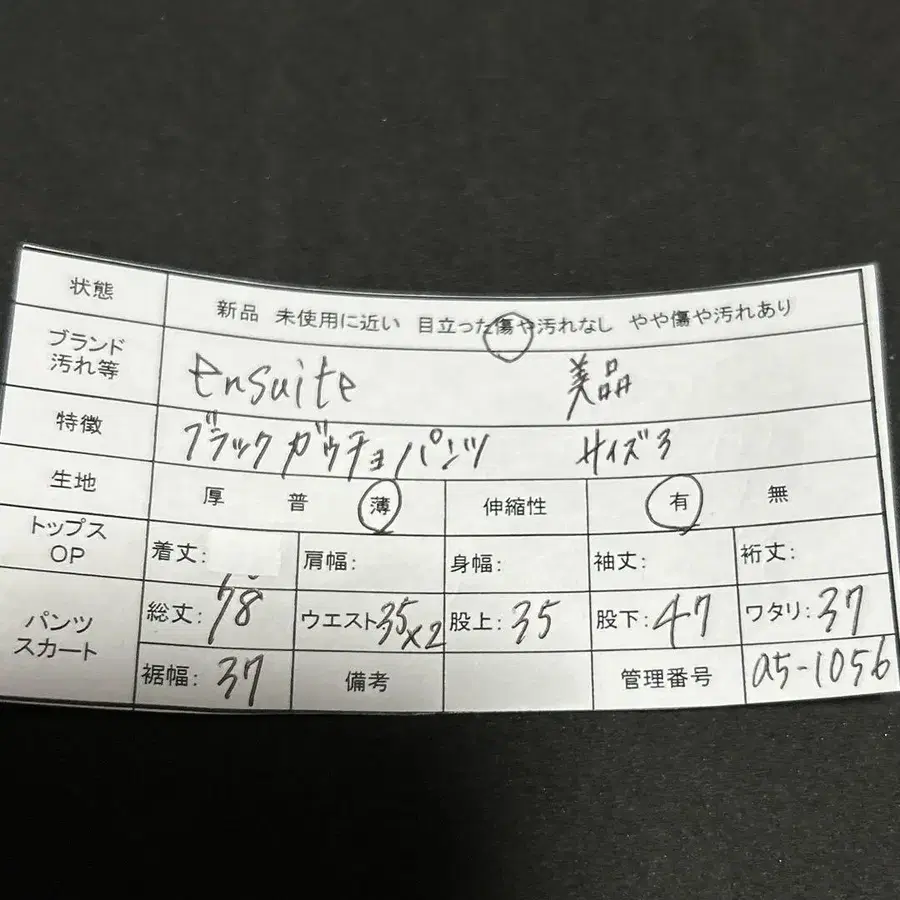 状態 新品 未使用に近い 目立った傷や汚れなし やや傷や汚れあり
ブランド
汚れ等 ensuite 美品
特徴 ブラックガウチョパンツ サイズ3
生地 厚 普 薄 伸縮性 有 無
トップス
OP 着丈: 肩幅: 身幅: 袖丈: 裄丈:
パンツ
スカート 総丈: 78 ウエスト35x2 股上: 35 股下: 47 ワタリ: 37
裾幅: 37 備考 管理番号 a5-1056